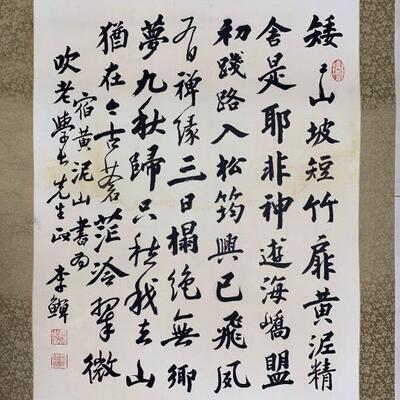 矮々山坡短竹扉黄泥精
舍是耶非神遊海嶠盟
初踐路入松筠興已飛風
禪緣三日榻絕無鄉
夢九秋歸只愁我去山
猶在今古蒼茫冷翠微
宿黄泥山書為
吹老學長先生政 李鱓